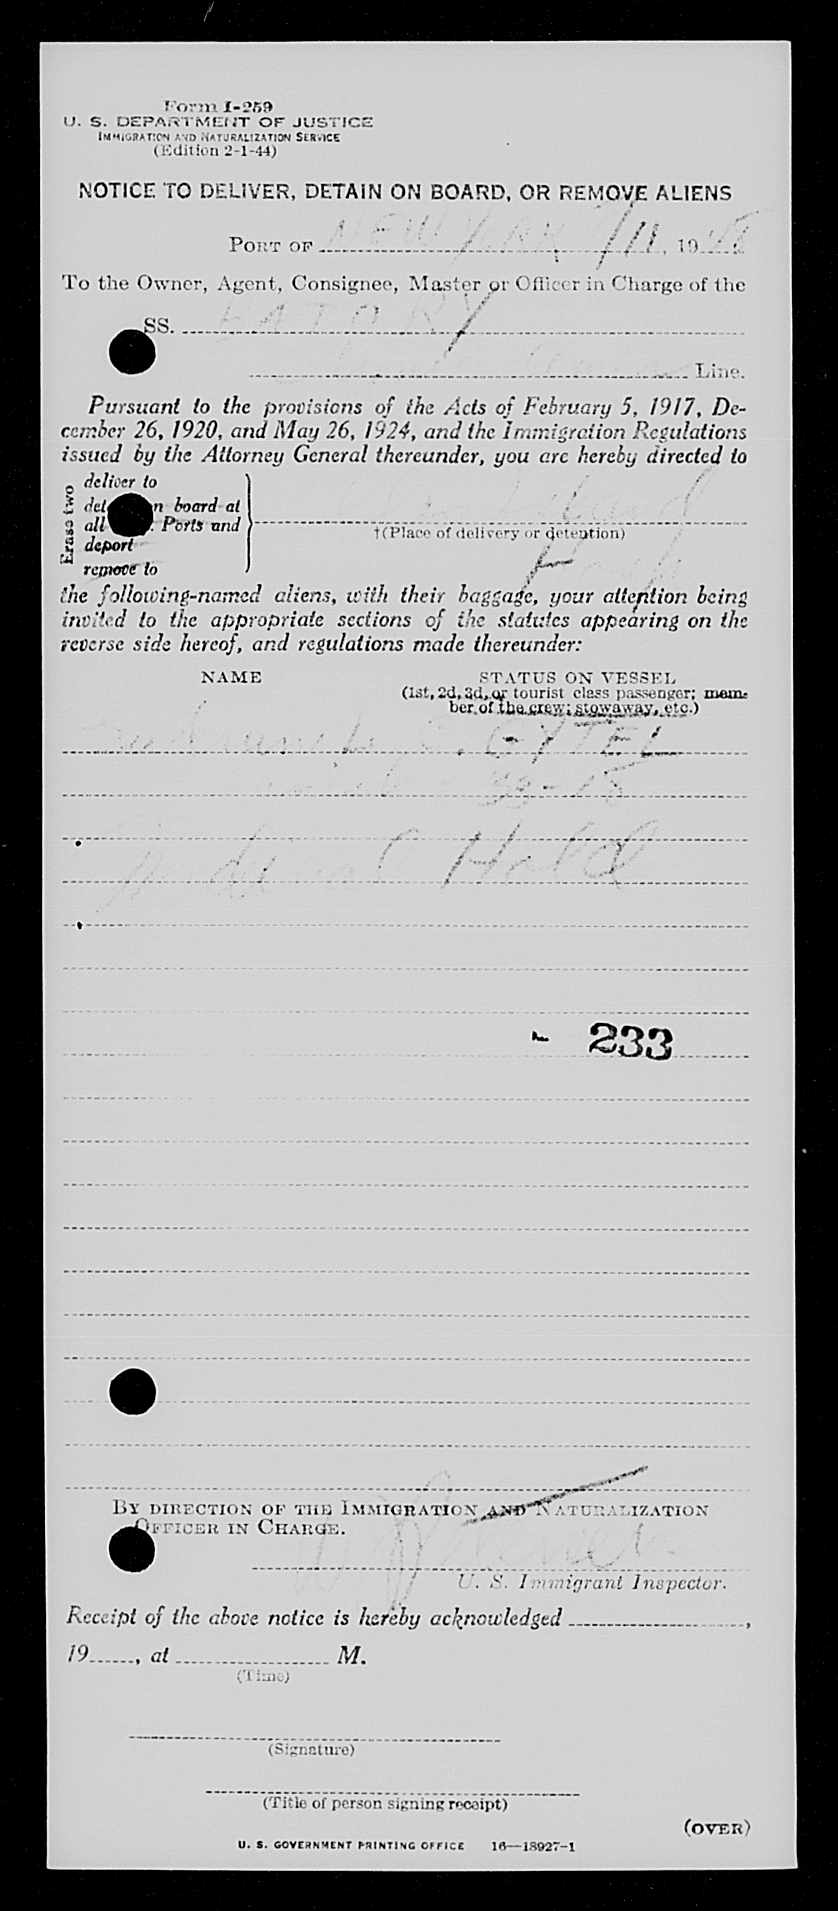 Form I-259
U. S. DEPARTMENT OF JUSTICE
IMMIGRATION AND NATURALIZATION SERVICE
(Edition 2-1-44)
NOTICE TO DELIVER, DETAIN ON BOARD, OR REMOVE ALIENS
PORT OF NEW YORK 7/11, 19
To the Owner, Agent, Consignee, Master or Officer in Charge of the
SS.
Line.
Pursuant to the provisions of the Acts of February 5, 1917, De-
cember 26, 1920, and May 26, 1924, and the Immigration Regulations
issued by the Attorney General thereunder, you are hereby directed to
Erase two
deliver to
n board at
all Ports and
†(Place of delivery or detention)
deport
remove to
the following-named aliens, with their baggage, your attention being
invited to the appropriate sections of the statutes appearing on the
reverse side hereof, and regulations made thereunder:
NAME STATUS ON VESSEL
(1st, 2d, 3d, or tourist class passenger; mem-
ber of the crew; stowaway, etc.)
Hold
233
BY DIRECTION OF THE IMMIGRATION AND NATURALIZATION
OFFICER IN CHARGE.
U. S. Immigrant Inspector.
Receipt of the above notice is hereby acknowledged ,
19 , at M.
(Time)
(Signature)
(Title of person signing receipt)
(OVER)
U. S. GOVERNMENT PRINTING OFFICE 16—18927-1